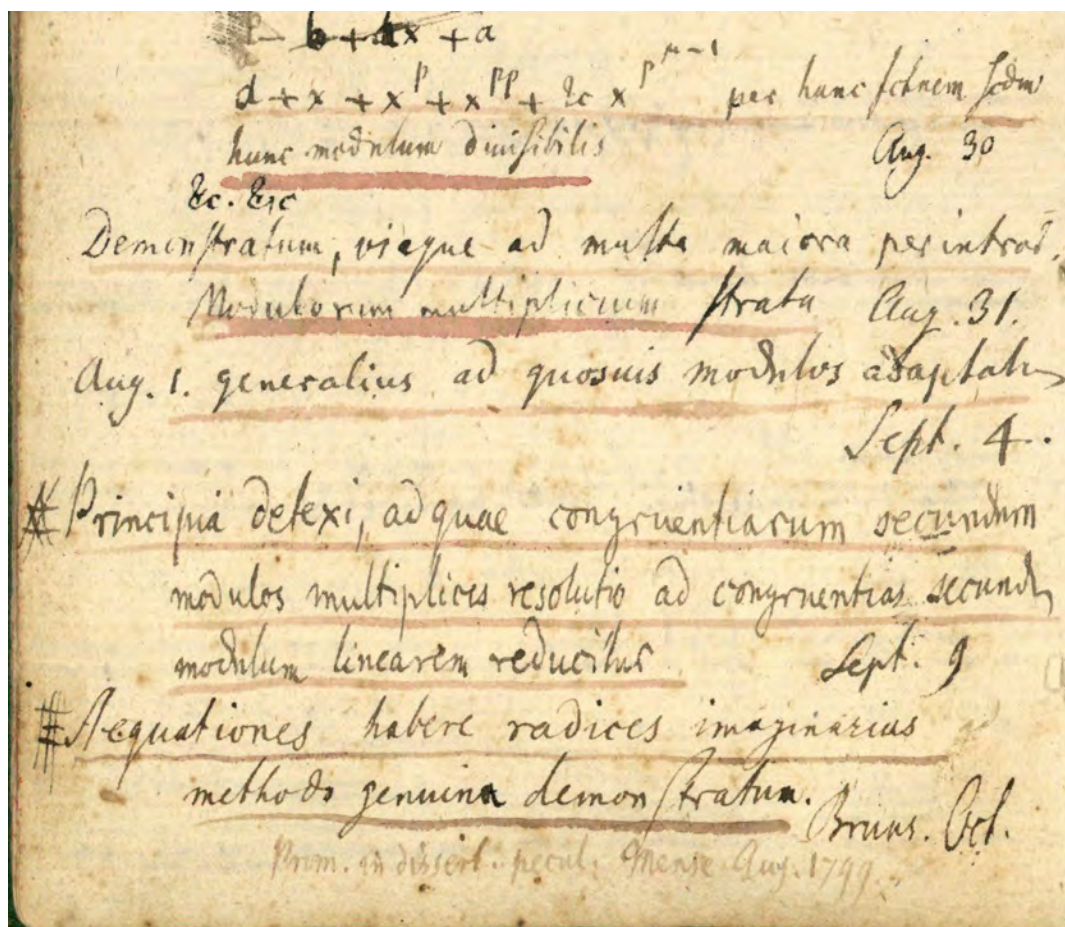 b + dx + a
d + x + x^p + x^pp + &c x^p^μ-1 per hanc fctnem scdm
hunc modulum divisibilis Aug. 30
&c. &c
Demonstratum, viaque ad multa maiora per introd.
Modulorum multiplicium strata Aug. 31.
Aug. 1. generalius ad quosuis modulos adaptatur
Sept. 4.
Principia detexi, ad quae congruentiarum secundum
modulos multiplices resolutio ad congruentias secundu
modulum linearem reducitur Sept. 9
Aequationes habere radices imaginarias
methodo genuina demonstratum. Bruns. Oct.
Prom. in dissert. pecul. Mense Aug. 1799